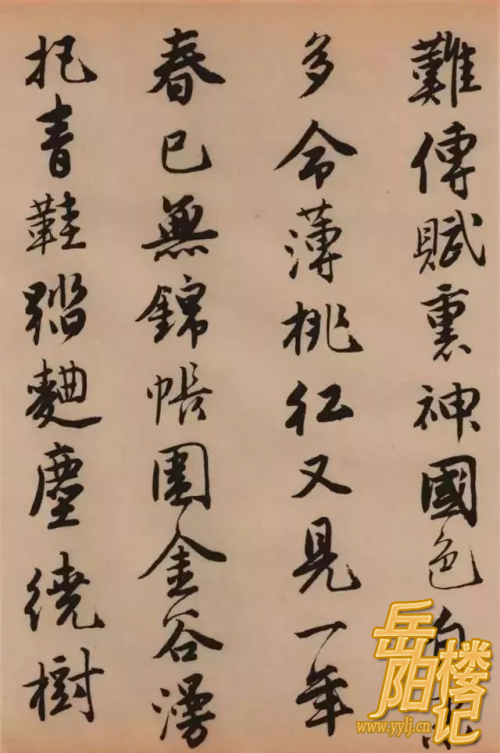 難傳賦神國色
多命薄桃紅又見一年
春已無錦帳圍金谷漫
把青鞋踏麯塵繞樹
岳陽樓记
www.yylj.cn